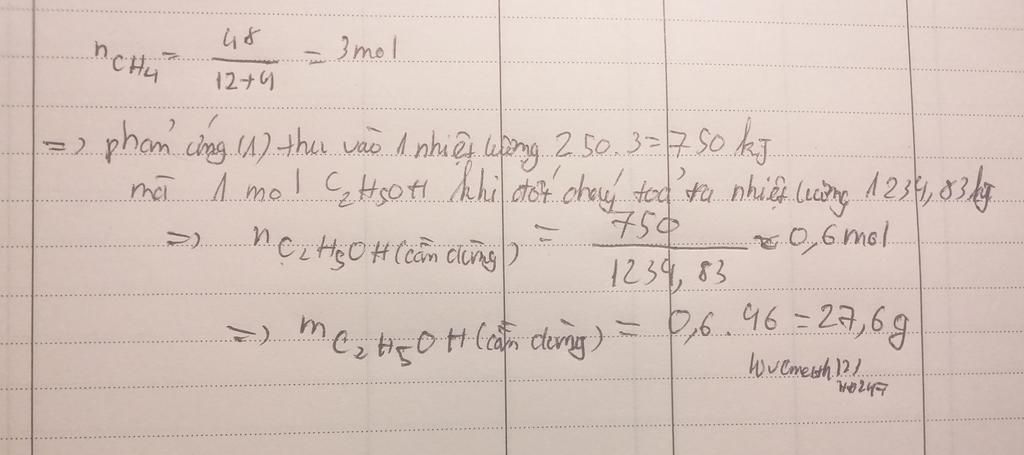 nCH4 = 48/(12+4) = 3 mol
=> phản ứng (1) thu vào 1 nhiệt lượng 250.3=750 kJ
mà 1 mol C2H5OH khi đốt cháy toả ra nhiệt lượng 1234,83 kJ
=> nC2H5OH (cần dùng) = 750/1234,83 ≈ 0,6 mol
=> mC2H5OH (cần dùng) = 0,6 . 46 = 27,6g